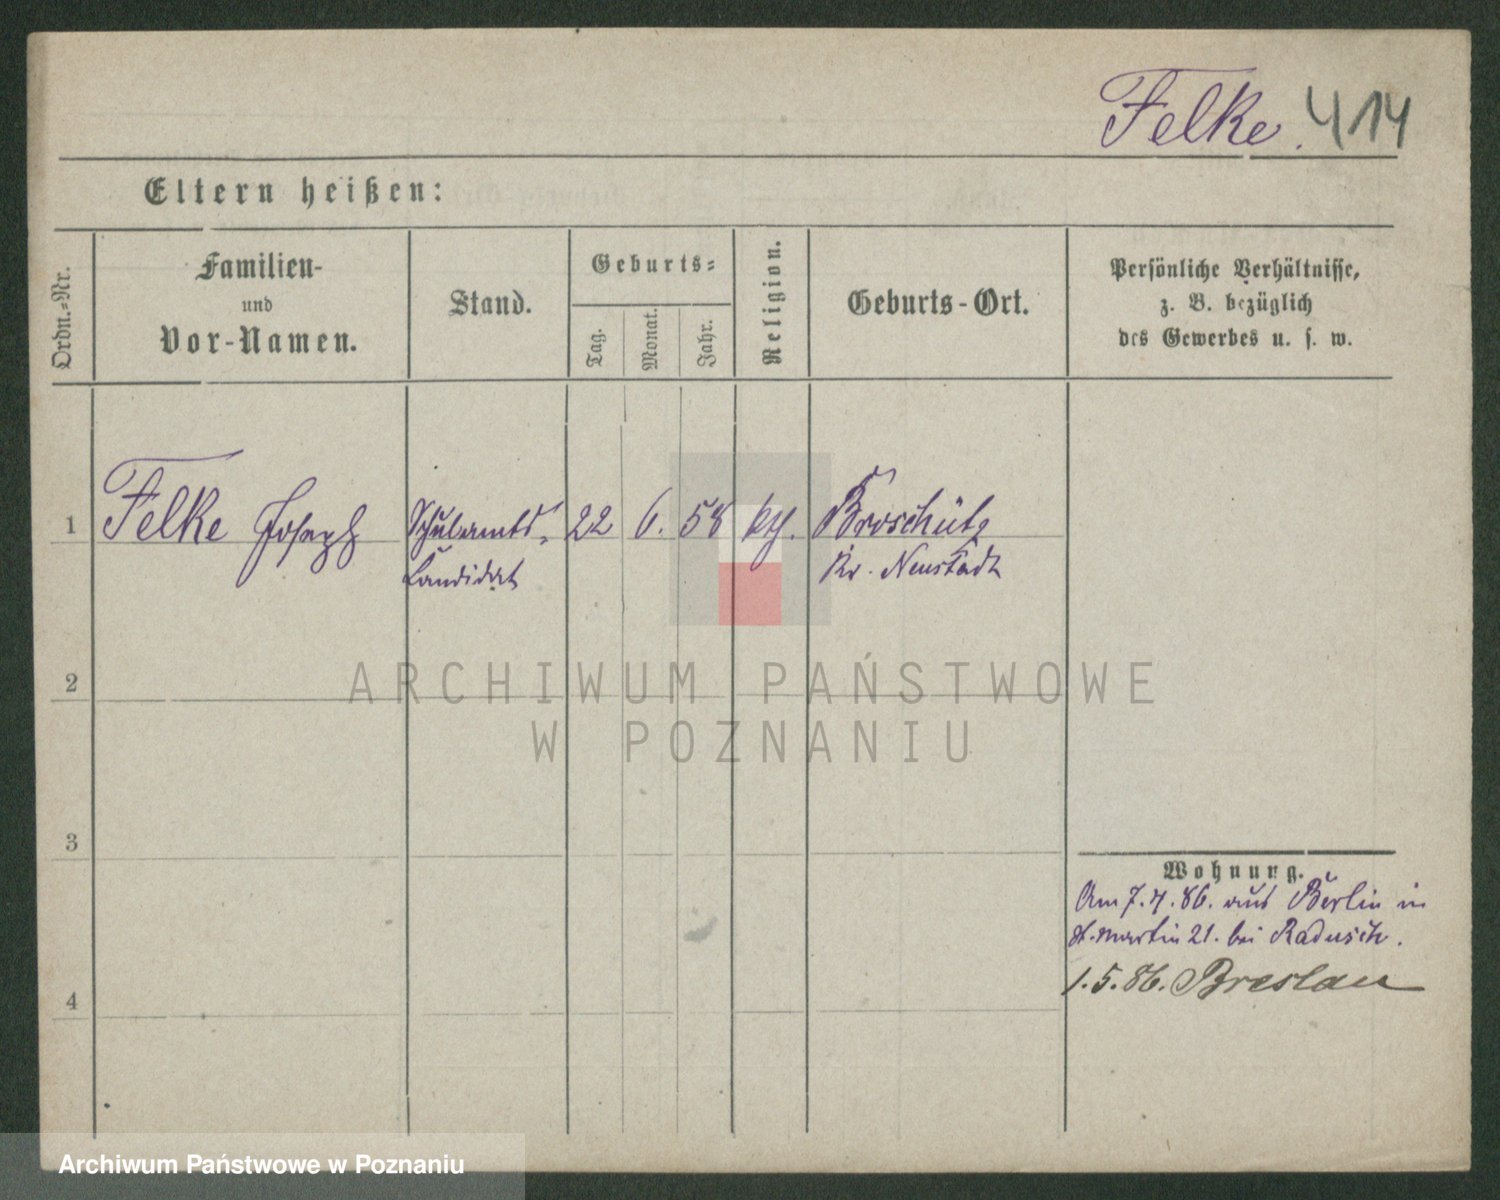 Felke. 414
Eltern heißen:
Ordn.-Nr.
Familien-
und
Vor-Namen.
Stand.
Geburts-
Tag.
Monat.
Jahr.
Religion.
Geburts-Ort.
Persönliche Verhältnisse,
z. B. bezüglich
des Gewerbes u. s. w.
1 Felke Joseph Schulamts- 22 6. 58 Broschütz
Candidat Kr. Neustadt
2
3
4
Wohnung.
Am 7.4.86. aus Berlin in
St. Martin 21. bei Radusch.
1.5.86. Breslau
ARCHIWUM PAŃSTWOWE
W POZNANIU
Archiwum Państwowe w Poznaniu